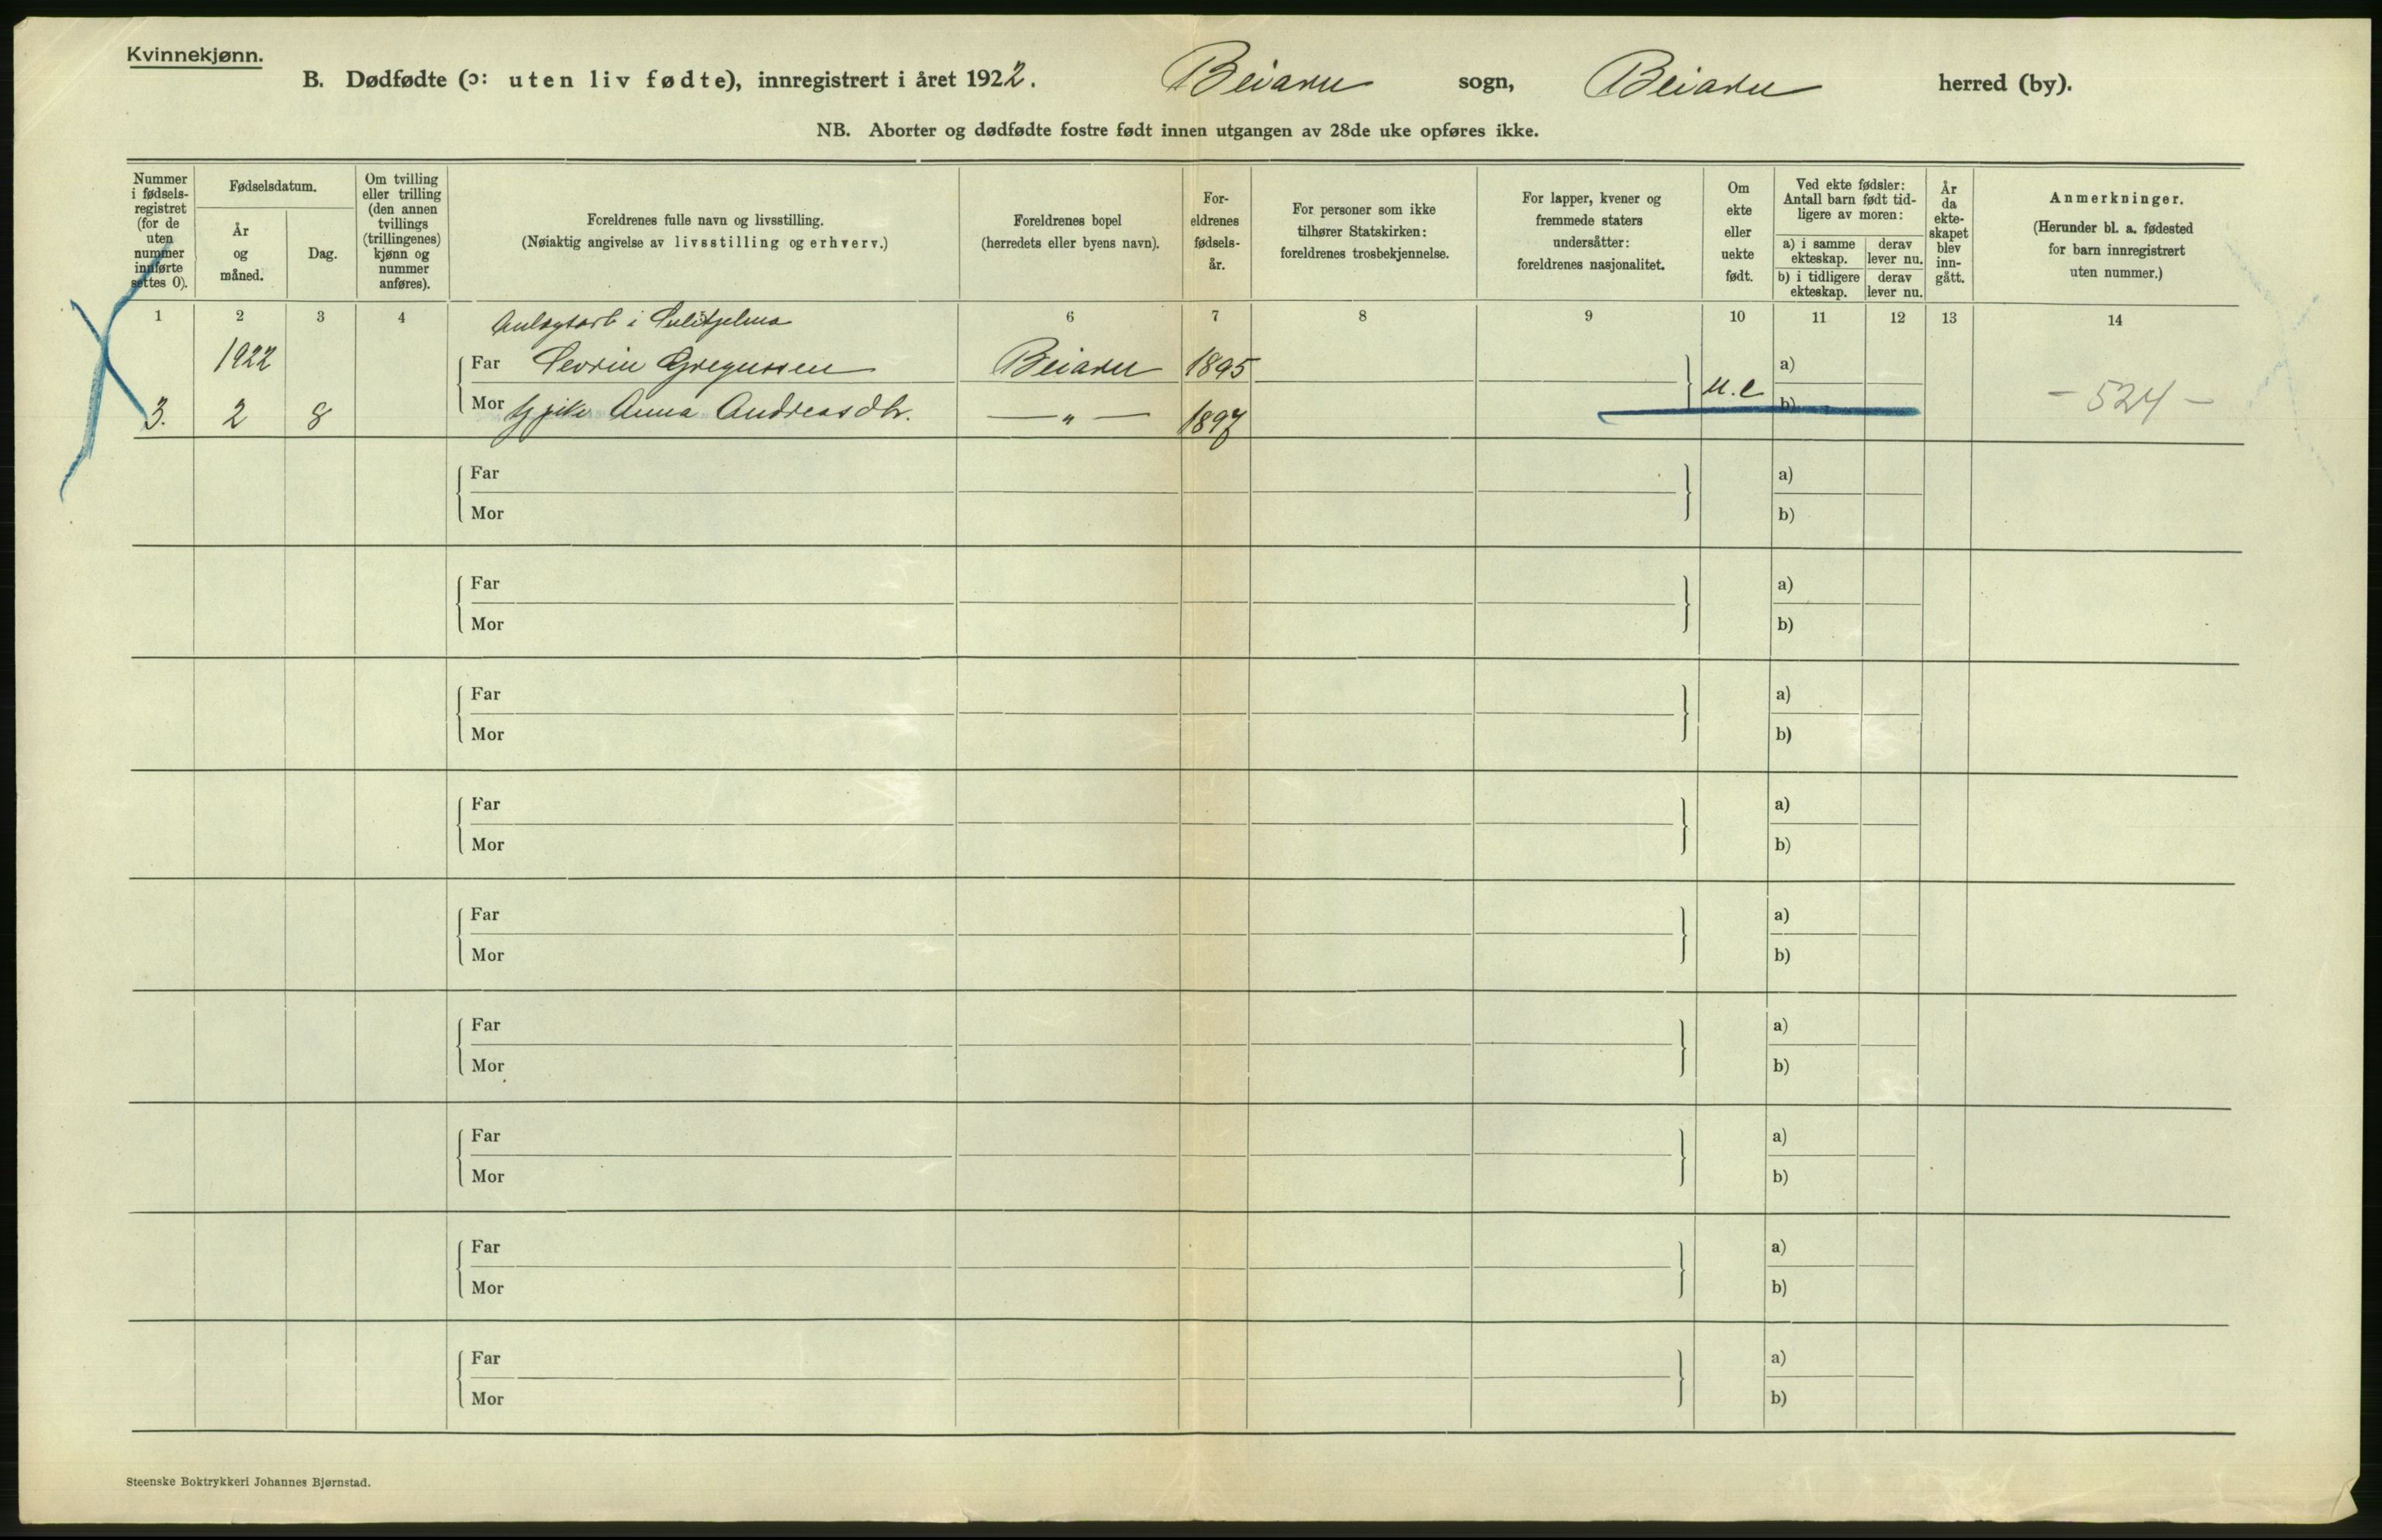 Kvinnekjønn.
B. Dødfødte (ɔ: uten liv fødte), innregistrert i året 1922. Beiarn sogn, Beiarn herred (by).
NB. Aborter og dødfødte fostre født innen utgangen av 28de uke opføres ikke.
Nummer i fødsels-registret (for de uten nummer innførte settes 0).
Fødselsdatum.
År og måned.
Dag.
Om tvilling eller trilling (den annen tvillings (trillingenes) kjønn og nummer anføres).
Foreldrenes fulle navn og livsstilling.
(Nøiaktig angivelse av livsstilling og erhverv.)
Foreldrenes bopel
(herredets eller byens navn).
For-eldrenes fødsels-år.
For personer som ikke tilhører Statskirken: foreldrenes trosbekjennelse.
For lapper, kvener og fremmede staters undersåtter: foreldrenes nasjonalitet.
Om ekte eller uekte født.
Ved ekte fødsler: Antall barn født tid-ligere av moren:
a) i samme ekteskap.
derav lever nu.
b) i tidligere ekteskap.
derav lever nu.
År da ekte-skapet blev inn-gått.
Anmerkninger.
(Herunder bl. a. fødested for barn innregistrert uten nummer.)
1 2 3 4 6 7 8 9 10 11 12 13 14
Anlegsarb i Sulitjelma
1922 Far Sevrin Gregussen Beiarn 1895 a)
3. 2 8 Mor pike Anna Andreasdtr. — " — 1897 u.e b) - 524 -
Far a)
Mor b)
Far a)
Mor b)
Far a)
Mor b)
Far a)
Mor b)
Far a)
Mor b)
Far a)
Mor b)
Far a)
Mor b)
Far a)
Mor b)
Far a)
Mor b)
Steenske Boktrykkeri Johannes Bjørnstad.